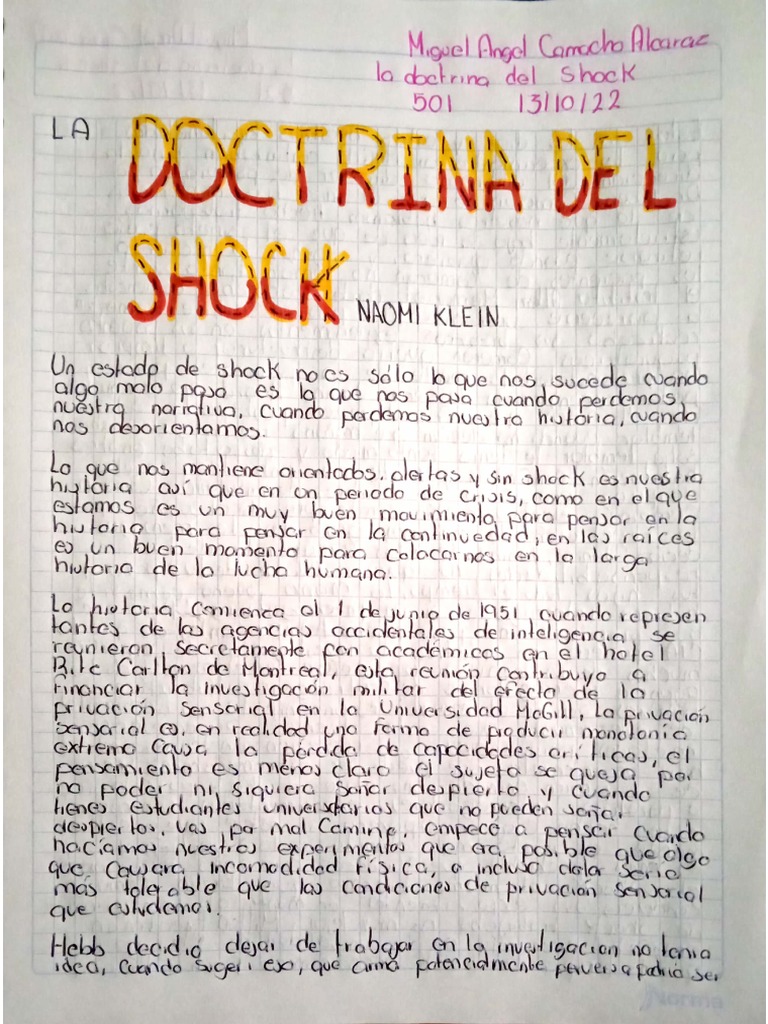 Miguel Angel Camacho Alcaraz
la doctrina del Shock
501 13/10/22
LA DOCTRINA DEL
SHOCK NAOMI KLEIN
Un estado de shock no es sólo lo que nos sucede cuando
algo malo pasa es lo que nos pasa cuando perdemos
nuestra narrativa, cuando perdemos nuestra historia, cuando
nos desorientamos.
Lo que nos mantiene orientados, alertas y sin shock es nuestra
historia así que en un periodo de crisis, como en el que
estamos es un muy buen movimiento para pensar en la
historia para pensar en la continuedad, en las raíces
es un buen momento para colocarnos en la larga
historia de la lucha humana.
La historia comienca el 1 de junio de 1951 cuando represen
tantes de las agencias occidentales de inteligencia, se
reunieron secretamente con académicos en el hotel
Ritc Carlton de Montreal, esta reunión contribuyo a
financiar la investigación militar del efecto de la
privación sensorial en la Universidad McGill, la privación
sensorial es, en realidad una forma de producir monotonía
extrema causa la pérdida de capacidades críticas, el
pensamiento es menos claro el sujeto se queja por
no poder ni siquiera soñar despierto y cuando
tienes estudiantes universitarios que no pueden soñar
despiertos, vas por mal camino, empecé a pensar cuando
hacíamos nuestros experimentos que era posible que algo
que causara incomodidad física, o incluso dolor seria
más tolerable que las condiciones de privación sensorial
que estudemos.
Hebb decidio dejar de trabajar en la investigacion no tenia
idea, cuando sugeri eso, que arma potencialmente perversa podria ser
Norma